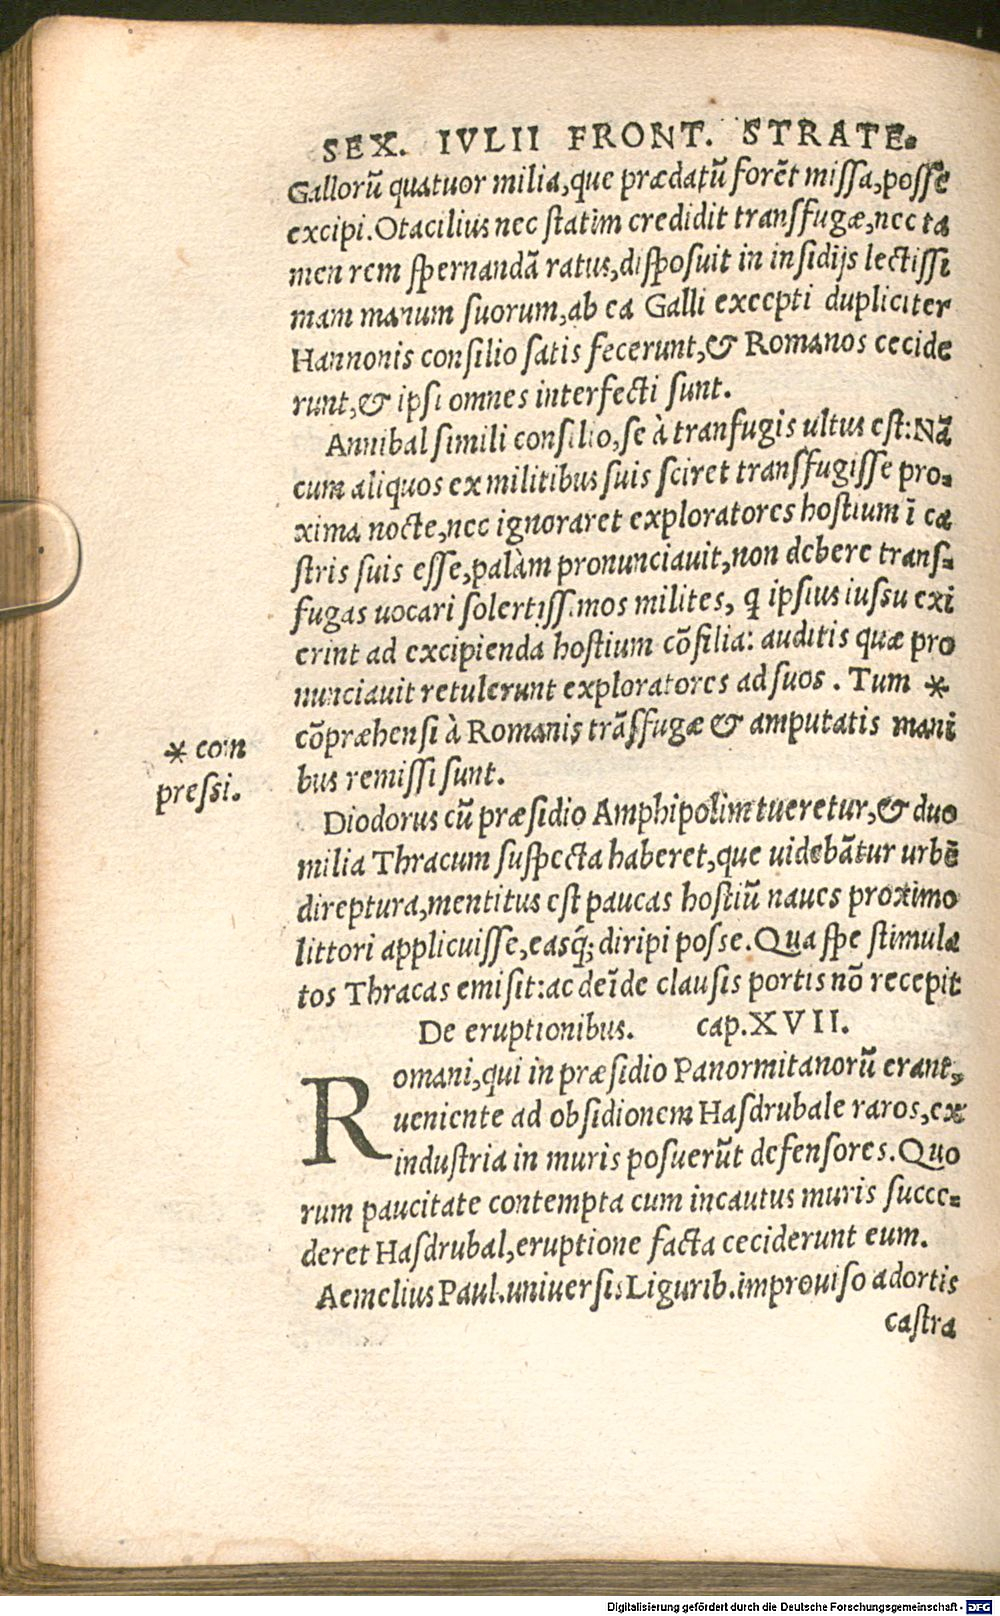 SEX. IVLII FRONT. STRATE.
Gallorū quatuor milia, que prædatū forēt missa, posse
excipi. Otacilius nec statim credidit transfugæ, nec ta
men rem spernandā ratus, disposuit in insidijs lectissi
mam manum suorum, ab ea Galli excepti dupliciter
Hannonis consilio satis fecerunt, & Romanos cecide
runt, & ipsi omnes interfecti sunt.
Annibal simili consilio, se à tranfugis ultus est: Nā
cum aliquos ex militibus suis sciret transfugisse pro-
xima nocte, nec ignoraret exploratores hostium ī ca
stris suis esse, palàm pronunciauit, non debere trans-
fugas uocari solertissimos milites, q ipsius iussu exi
erint ad excipienda hostium cōsilia: auditis quæ pro
nunciauit retulerunt exploratores ad suos. Tum *
cōpræhensi à Romanis trāsfugæ & amputatis mani
bus remissi sunt.
* com
pressi.
Diodorus cū præsidio Amphipolim tueretur, & duo
milia Thracum suspecta haberet, que uidebātur urbē
direptura, mentitus est paucas hostiū naues proximo
littori applicuisse, easq́; diripi posse. Qua spe stimula
tos Thracas emisit: ac deīde clausis portis nō recepit
De eruptionibus. cap. XVII.
Romani, qui in præsidio Panormitanorū erant,
ueniente ad obsidionem Hasdrubale raros, ex
industria in muris posuerūt defensores. Quo
rum paucitate contempta cum incautus muris succe-
deret Hasdrubal, eruptione facta ceciderunt eum.
Aemelius Paul. uniuersis Ligurib. improuiso adortis
castra
Digitalisierung gefördert durch die Deutsche Forschungsgemeinschaft - DFG